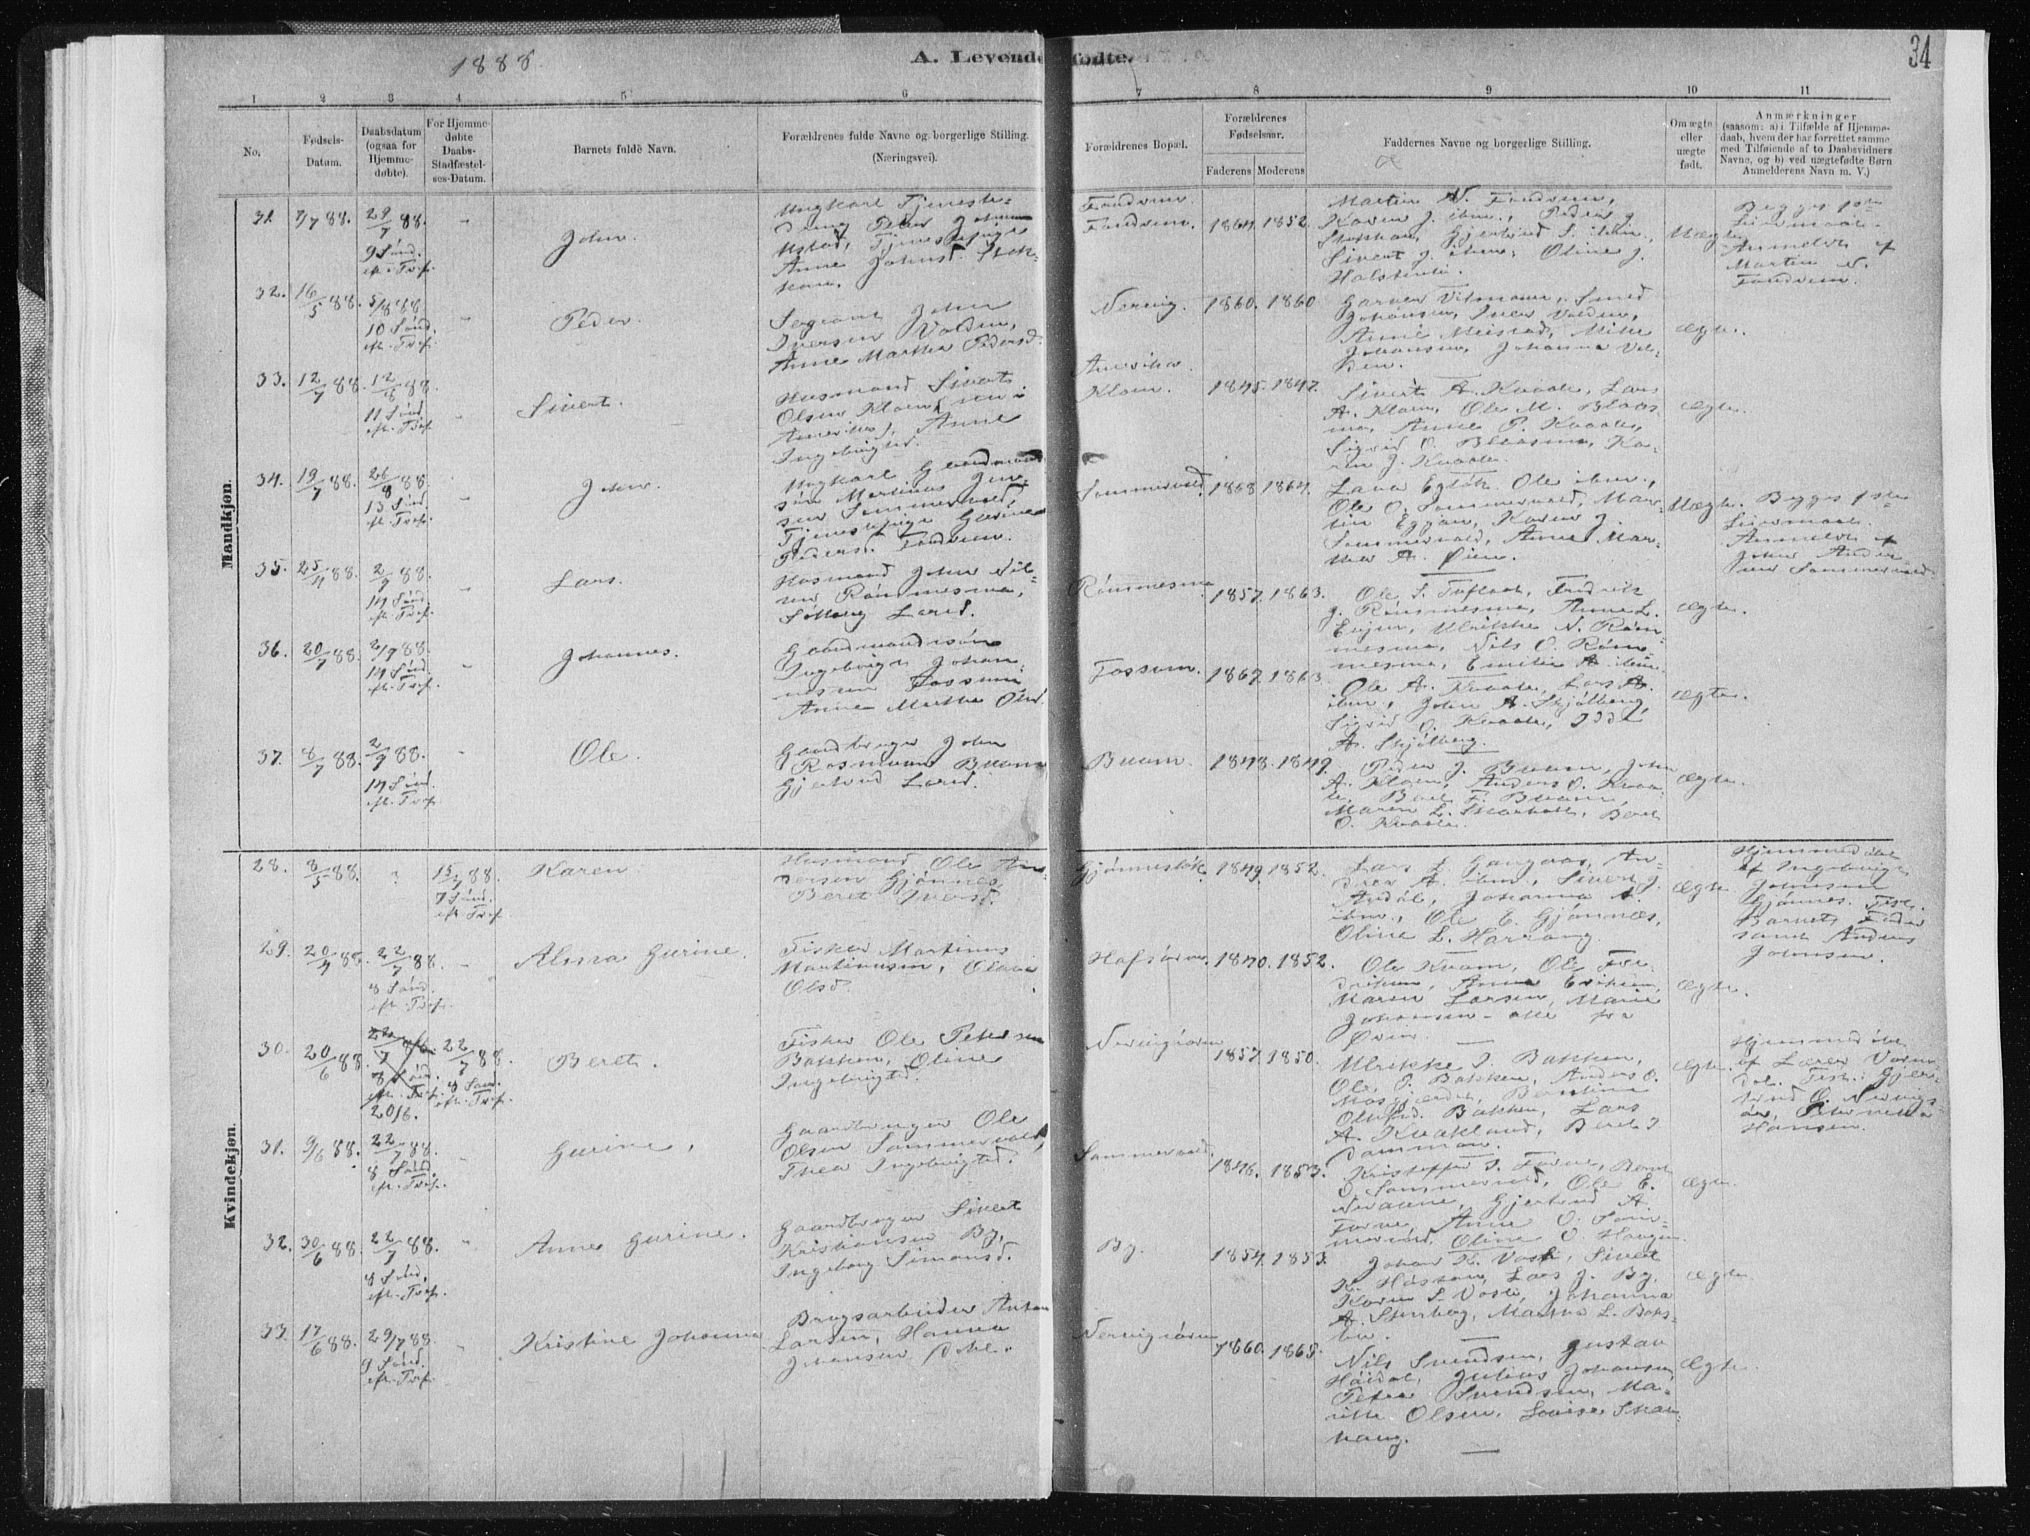 1888.
A. Levende fødte.
34
1 2 3 4 5 6 7 8 9 10 11
No.
Fødsels-Datum.
Daabsdatum (ogsaa for Hjemme-døbte).
For Hjemme-døbte Daabs-Stadfæstel-ses-Datum.
Barnets fulde Navn.
Forældrenes fulde Navne og borgerlige Stilling. (Næringsvei).
Forældrenes Bopæl.
Forældrenes Fødselsaar.
Faderens Moderens
Faddernes Navne og borgerlige Stilling.
Om ægte eller uægte født.
Anmærkninger
(saasom: a) i Tilfælde af Hjemme-
daab, hvem der har forrettet samme
med Tilføiende af to Daabsvidners
Navne, og b) ved uægtefødte Børn
Anmelderens Navn m. V.)
Mandkjøn.
31. 7/7 88. 29/7 88.
9 Sønd.
eft. Tref.
John.
Ungkarl Tjeneste-
dreng Peter Johnsen
Ustad, Tjenestepige
Anne Johnsd.
1864. 1852.
Martin N.
Karen J. ibm., Peder J.
Sivert J. ibm., Oline J.
Uægte
Begges 1ste
Leiermaal.
Anmeldt af
Martin N.
32. 16/5 88. 5/8 88
10 Sønd.
eft. Tref.
Peder.
Sergeant John
Iversen Valden,
Anne Martha Pedersd.
Nervig.
1860. 1860
Garver Vitmann, Smed
Johansen, Iver Valden,
Anne Meistad, Mikke
Johansen, Johanna Val-
den.
Ægte.
33. 12/7 88. 12/8 88.
11 Sønd.
eft. Tref.
Sivert.
Husmand Sivert
Olsen Kloen
Anne
Ingebrigtsd.
Amerika
Kloen.
1845. 1847.
Sivert A. Kvaale, Lars
A. Kloen, Ole M. Blaas-
mo, Anne P. Kvaale,
Sigrid O. Blaasmo, Ka-
ren J. Kvaale.
Ægte.
34. 19/7 88. 26/8 88.
13 Sønd.
eft. Tref.
John.
Ungkarl Gaardmand-
søn Martinus
Sommervold,
Tjenestepige Gurine
Pedersd.
Sommervold.
1868 1864.
Ole ibm.,
Ole O. Sommervold, Mar-
tin Eggan, Karen J.
Sommervold, Anne Mar-
tha A. Øien.
Uægte.
Begges 1ste
Leiermaal.
Anmeldt af
John Ander-
sen Sommervold.
35. 25/7 88. 2/9 88.
14 Sønd.
eft. Tref.
Lars.
Husmand John Nil-
sen Rømmesmo,
Solborg Larsd.
Rømmesmo
1857. 1863.
Ole S. Fredrik
J. Rømmesmo, Anne L.
Evjen, Ulrikke N. Røm-
mesmo, Nils O. Røm-
mesmo, Emilie A. ibm.
Ægte.
36. 20/7 88. 2/9 88.
14 Sønd.
eft. Tref.
Johannes.
Gaardmandssøn
Ingebrigt Johan-
nesen Fossum
Anne Martha Olsd.
Fossum.
1862. 1863.
Ole A. Kvaale, Lars A.
ibm., John A. Skjølberg,
Sigrid O. Kvaale,
A. Skjølberg.
Ægte.
37. 8/7 88. 2/9 88.
14 Sønd.
eft. Tref.
Ole.
Gaardbruger John
Rasmusen Buam
Gjertrud Larsd.
Buam.
1848. 1849.
Peder J. Buam, John
A. Kloen, Anders O. Kvaa-
le, Beret F. Buam,
Maren L. Beret
O. Kvaale.
Ægte.
Kvindekjøn.
28. 8/5 88. " 15/7 88.
7 Sønd.
eft. Tref.
Karen
Husmand Ole An-
dersen Gjønnes,
Beret Iversd.
1849. 1852.
Lars L. Gangaas, An-
ders A. ibm., Sivert J.
Ardal, Johanna A.
ibm., Ole E. Gjønnes,
Oline L. Harrang.
Ægte
Hjemmedøbt
af Ingebrigt
Johnsen
Gjønnes. Test.
Barnets Fader
samt Anders
Johnsen.
29. 20/4 88. 22/7 88.
8 Sønd.
eft. Tref.
Alma Gurine.
Fisker Martinus
Martinusen, Olava
Olsd.
1840. 1852.
Ole Kvam, Ole Fre-
driksen, Anna Eriksen,
Maren Larsen, Marie
Johansen – alle fra
Ørin.
Ægte.
30. 20/6 88. 22/7 88.
8 Sønd.
eft. Tref.
20/6.
22/7 88.
8 Sønd.
eft. Tref.
Beret.
Fisker Ole Petersen
Bakken, Oline
Ingebrigtsd.
Nervigsøren
1857. 1850.
Ulrikke J. Bakken,
Ole P. Bakken, Anders O.
Bentine
Olsd. Bakken, Lars
A. Kvakland, Beret J
Damman.
Ægte.
Hjemmedøbt
af Lærer Vorm-
dal. Test. Gjer-
trud O. Nervigs-
ør, Peternella
Hansen.
31. 9/6 88. 22/7 88.
8 Sønd.
eft. Tref.
Gurine,
Gaardbruger Ole
Olsen Sommervold,
Thea Ingebrigtsd.
Sommervold.
1846. 1853.
Kristoffer S. Farve, Beret
O. Sommervold, Ole E.
Gjertrud A.
Farve, Anne O. Som-
mervold, Oline O. Haugen
Ægte.
32. 30/6 88. 22/7 88.
8 Sønd.
eft. Tref.
Anne Gurine.
Gaardbruger Sivert
Kristiansen By,
Ingeborg Simonsd.
By.
1854. 1853.
Johan K. Sivert
K. Lars J. By,
Karen S. Johanna
A. Stenberg, Martha L. Bak-
ken.
Ægte
33. 17/6 88. 29/7 88.
9 Sønd.
eft. Tref.
Kristine Johanna
Brugsarbeider Anton
Larsen, Hanna
Johansen
Nervigsøren
1860. 1865.
Nils Svendsen, Gustav
Høidal, Julius Johansen,
Petra Svendsen, Ma-
rith Olsen, Lovise
Ægte.